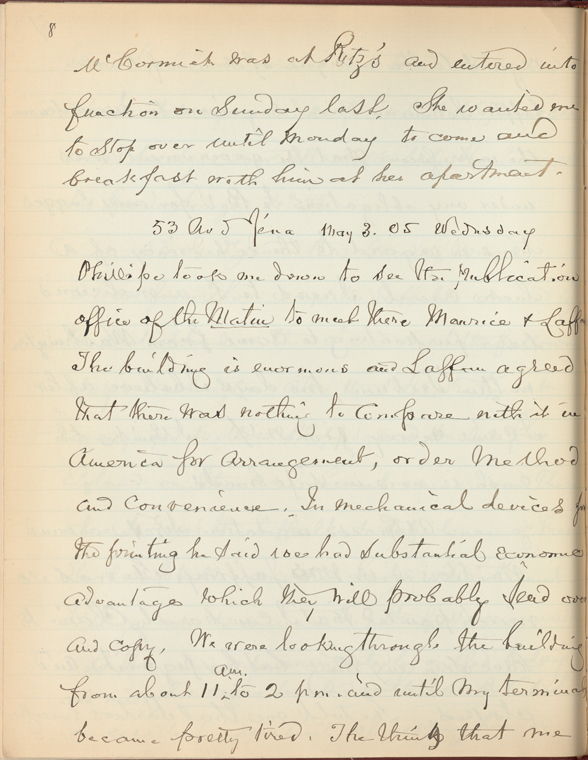 8
McCormick was at Ritz's and entered into
function on Sunday last. She wanted me
to stop over until Monday to come and
breakfast with him at her apartment.
53 Av d Jéna May 3. 05 Wednesday
Philippe took me down to see the publication
office of the Matin to meet there Maurice & Laff
The building is enormous and Laffan agreed
that there was nothing to compare with it in
America for arrangement, order method
and convenience. In mechanical devices
the printing he said we had substantial
advantages which they will probably send over
and copy. We were looking through the building
am.
from about 11, to 2 p.m. and until my terminals
became pretty tired. The that me